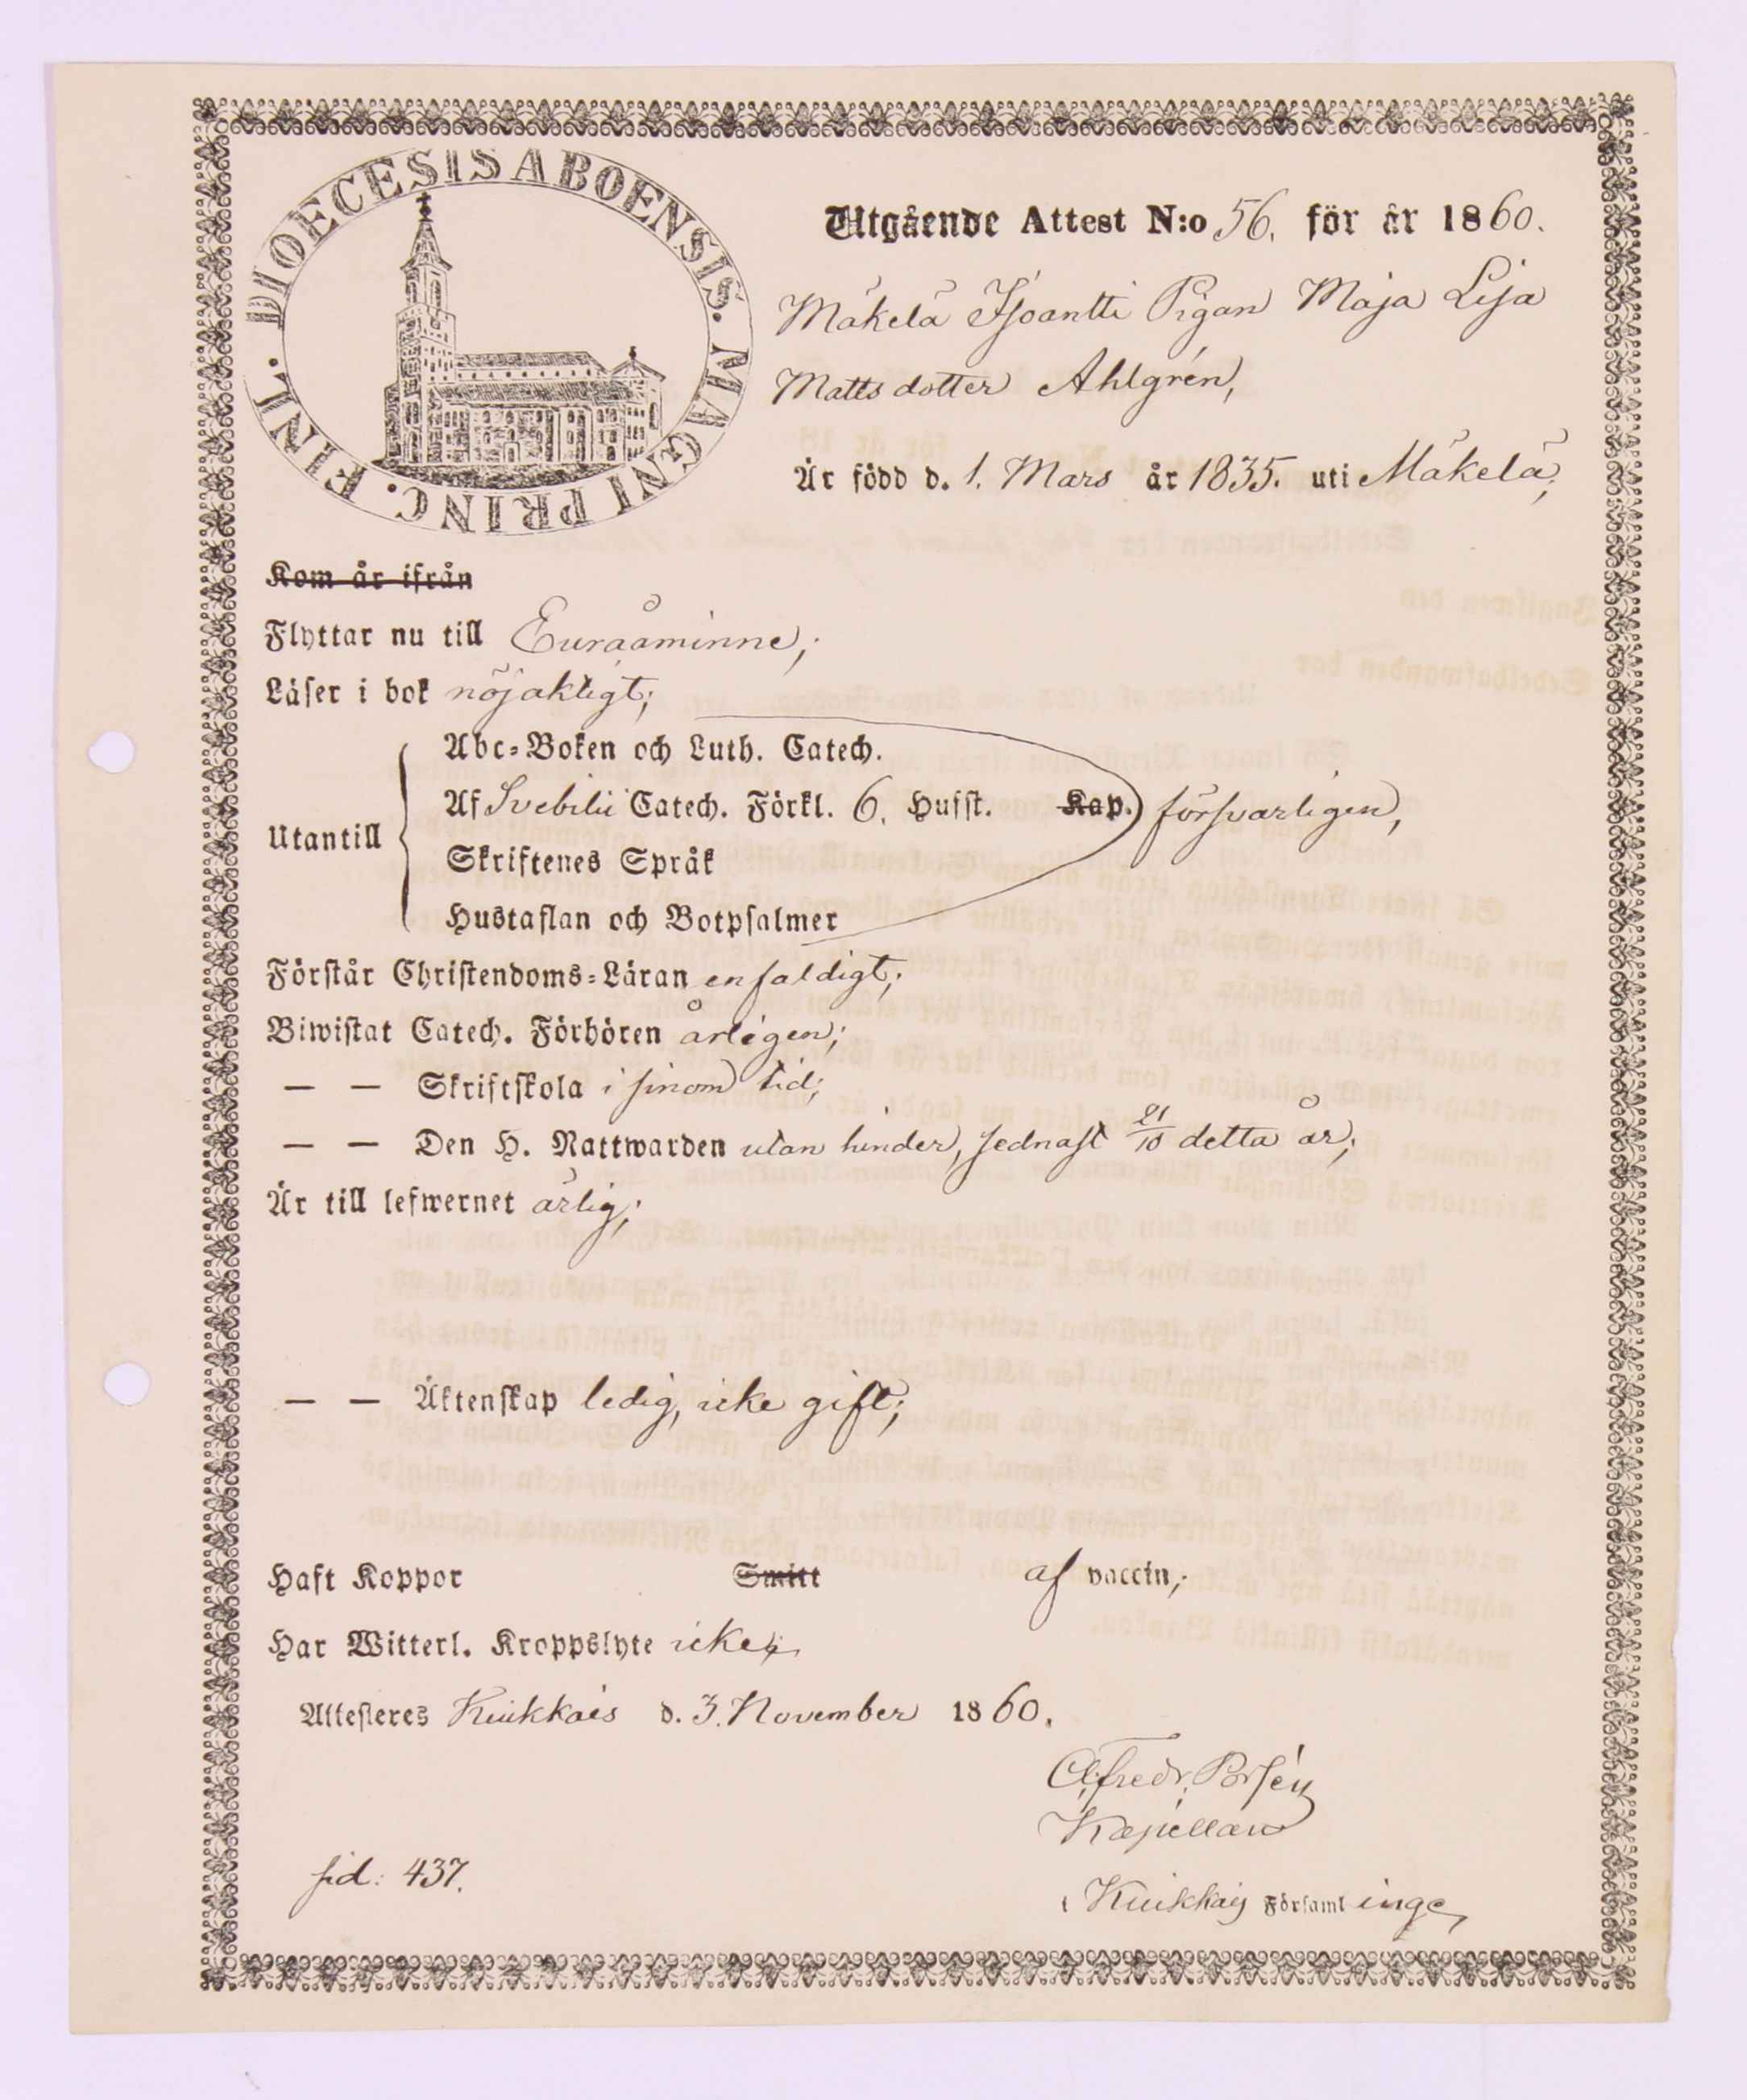 DIOECESIS ABOENSIS. MAGNI PRINC. FINL.
Utgående Attest N:o 56. för år 1860.
Mäkelä Isoantti Pigan Maja Lisa
Matts dotter Ahlgrén,
Är född d. 1. Mars år 1835. uti Mäkelä;
Kom år ifrån
Flyttar nu till Euraåminne;
Läser i bok nöjaktigt;
Abc-Boken och Luth. Catech.
Af Svebilii Catech. Förkl. 6. Hufst. Kap. försvarligen,
Utantill
Skriftenes Språk
Hustaflan och Botpsalmer
Förstår Christendoms-Läran enfaldigt;
Biwistat Catech. Förhören årligen;
— — Skriftskola i sinom tid;
— — Den H. Nattwarden utan hinder, sednast 21/10 detta år;
Är till lefwernet ärlig;
— — Äktenskap ledig, icke gift;
Haft Koppor Smitt af vaccin;
Har Witterl. Kroppslyte icke;
Attesteres Kiukkais d. 3. November 1860.
Alfredr. Porsén
Kapellan
sid: 437.
i Kiukkais Församlinge